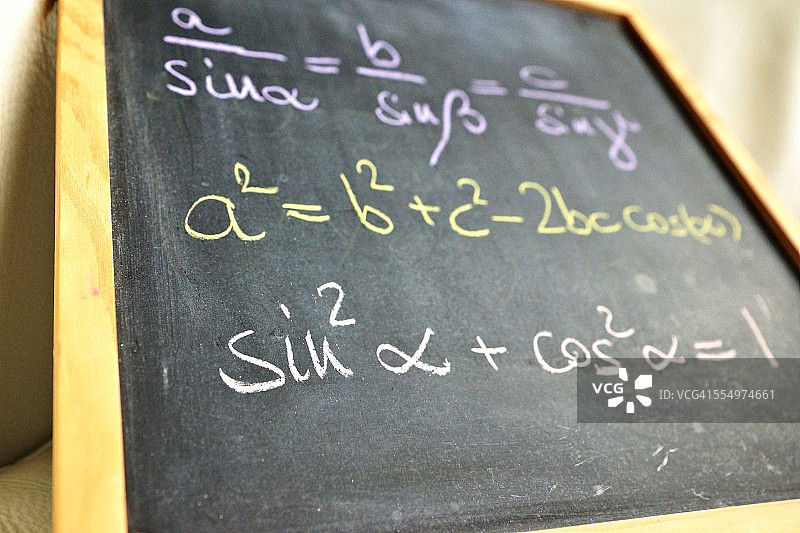 a/sinα = b/sinβ = c/sinγ
a² = b² + c² - 2bc cos(α)
sin² α + cos² α = 1
VCG ID: VCG41554974661